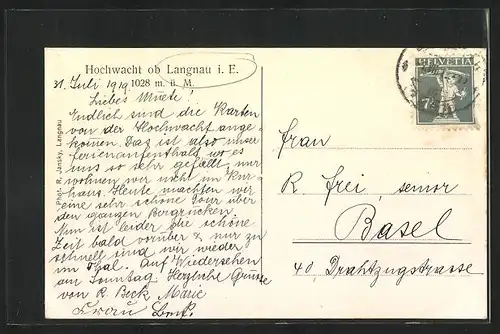 Hochwacht ob Langnau i. E.
1028 m. ü. M.
31. Juli 1919.
Liebes Müeti!
Endlich sind die Karten
von der Hochwacht ange-
kommen. Das ist also unser
Ferienaufenthalt, wo es
uns so sehr gefällt, nur
wohnen wir nicht im Kur-
haus. Heute machten wir
eine sehr schöne Tour über
den ganzen Bergrücken.
Nun ist leider die schöne
Zeit bald vorüber & nur zu
schnell sind wir wieder
im Thal. Auf Wiedersehen
am Sonntag. Herzliche Grüsse
von R. Beck, Marie
Frau
Phot. R. Jansky, Langnau
HELVETIA
7½
Frau
R. Frei, senior
Basel
40, Drahtzugstrasse